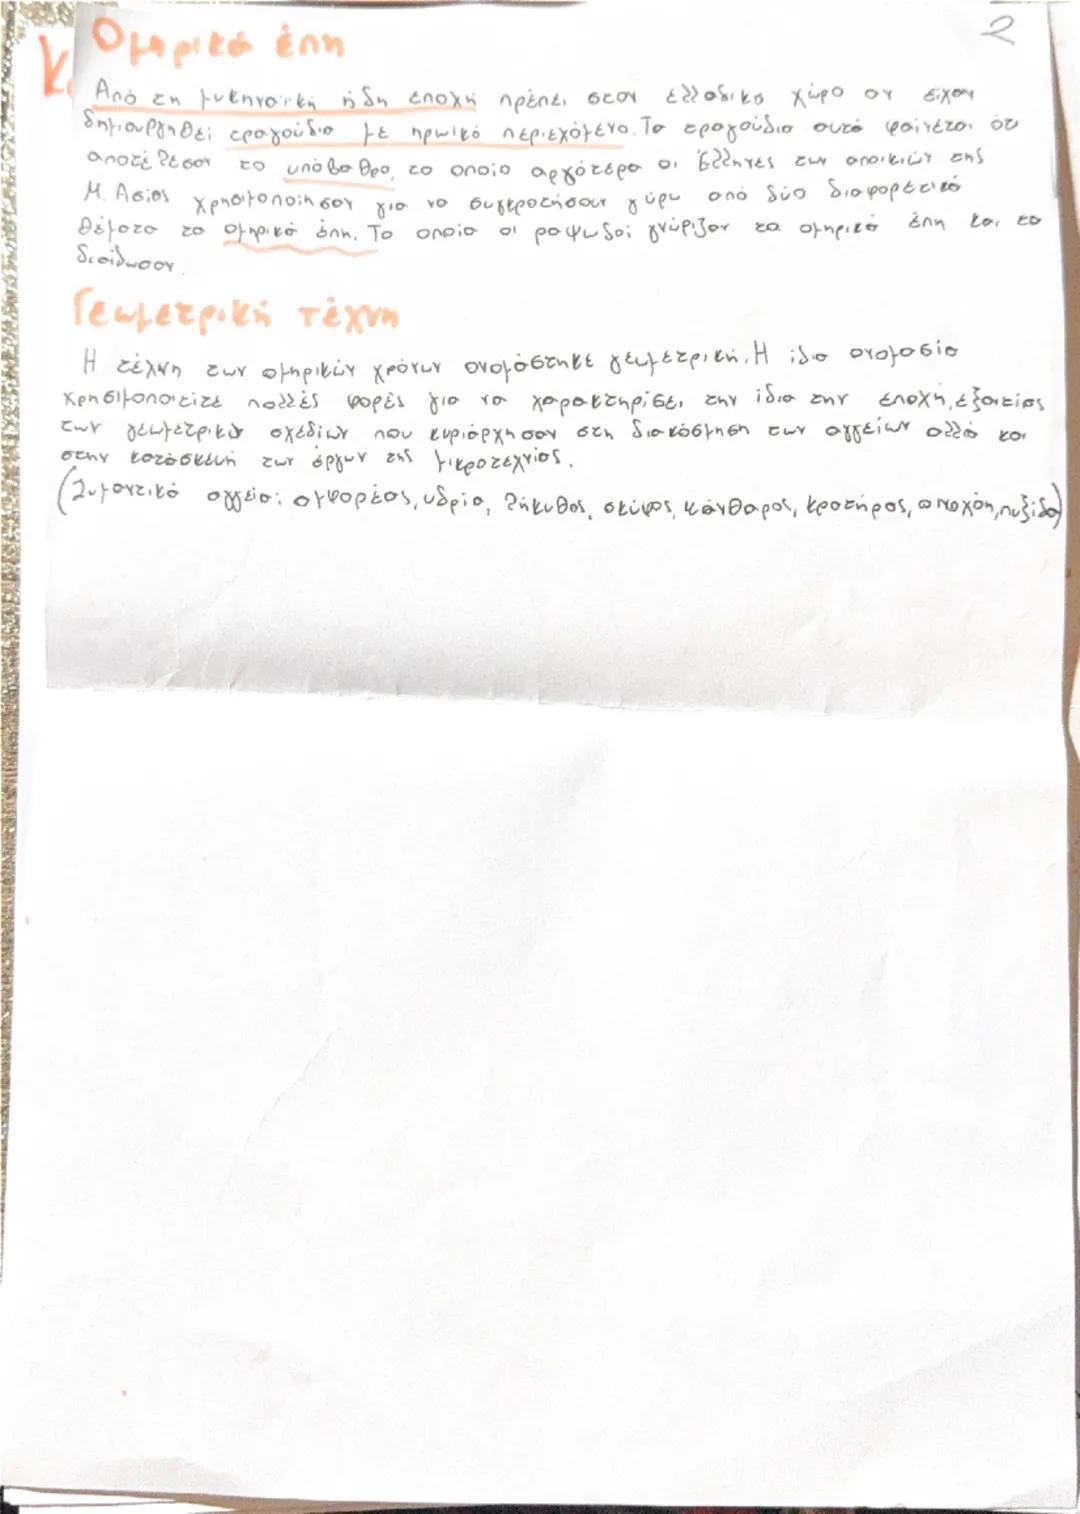 2
Ομηρικά έπη
Κ
Από τη μυκηναϊκή ήδη εποχή πρέπει στον ελλαδικό χώρο αν είχαν
δημιουργηθεί τραγούδια με ηρωικό περιεχόμενο. Τα τραγούδια αυτά φαίνεται ότι
αποτέλεσαν το υπόβαθρο, το οποίο αργότερα οι Έλληνες των αποικιών της
Μ. Ασίας χρησιμοποίησαν για να συγκροτήσουν γύρω από δύο διαφορετικά
θέματα τα ομηρικά έπη. Το οποία οι ραψωδοί γνώριζαν τα ομηρικά έπη και τα
διαίδωσαν.
Γεωμετρική τέχνη
Η τέχνη των ομηρικών χρόνων ονομάστηκε γεωμετρική. Η ίδια ονομασία
χρησιμοποιείτε πολλές φορές για να χαρακτηρίσει την ίδια την εποχή, εξαιτίας
των γεωμετρικών σχεδίων που κυριάρχησαν στη διακόσμηση των αγγείων αλλά και
στην κατασκευή των έργων της μικροτεχνίας.
(Σημαντικά αγγεία: αμφορέας, υδρία, λήκυθος, σκύφος, κάνθαρος, κρατήρας, οινοχόη, πυξίδα)